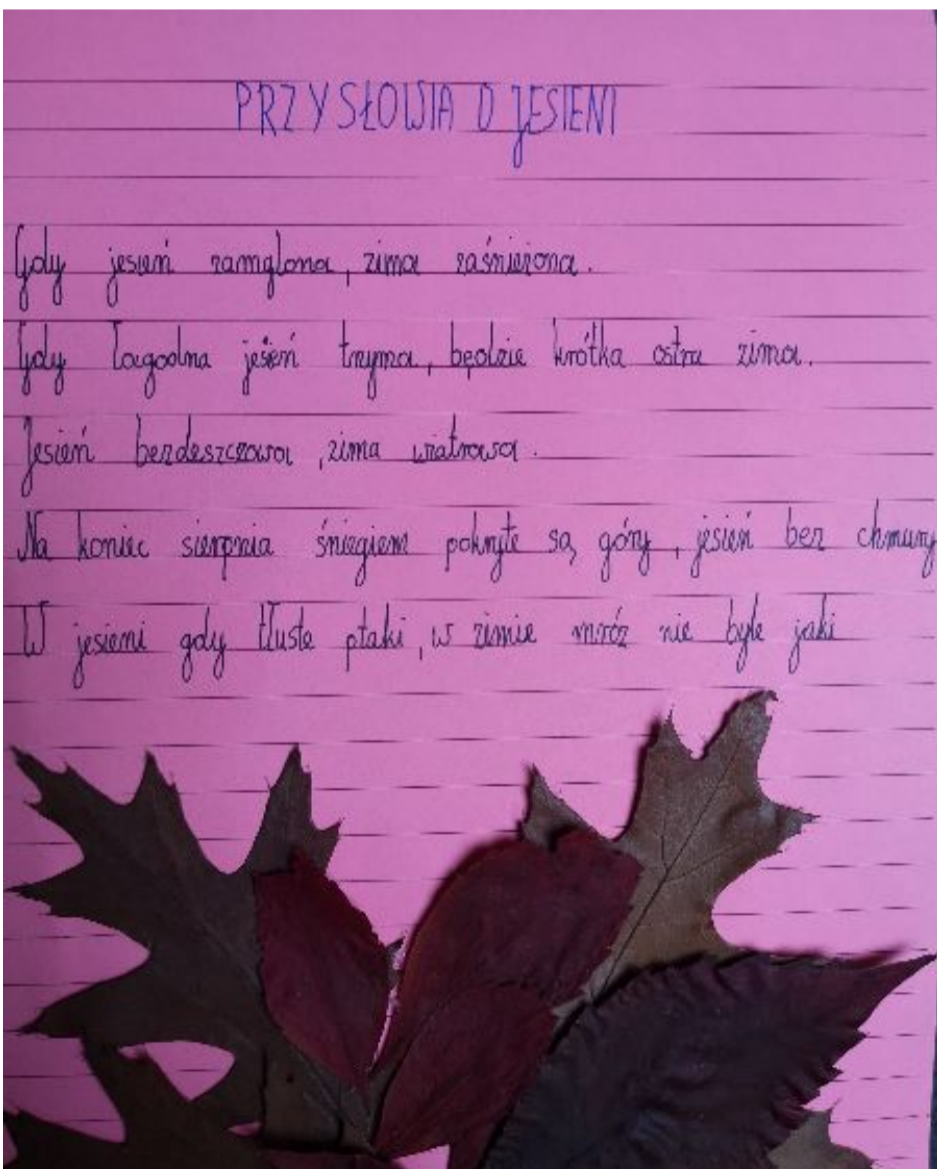 PRZYSŁOWIA O JESIENI
Gdy jesień zamglona, zima zaśnieżona.
Gdy łagodna jesień trzyma, będzie krótka ostra zima.
Jesień bezdeszczowa, zima wiatrowa.
Na koniec sierpnia śniegiem pokryte są góry, jesień bez chmury
W jesieni gdy tłuste ptaki, w zimie mróz nie byle jaki